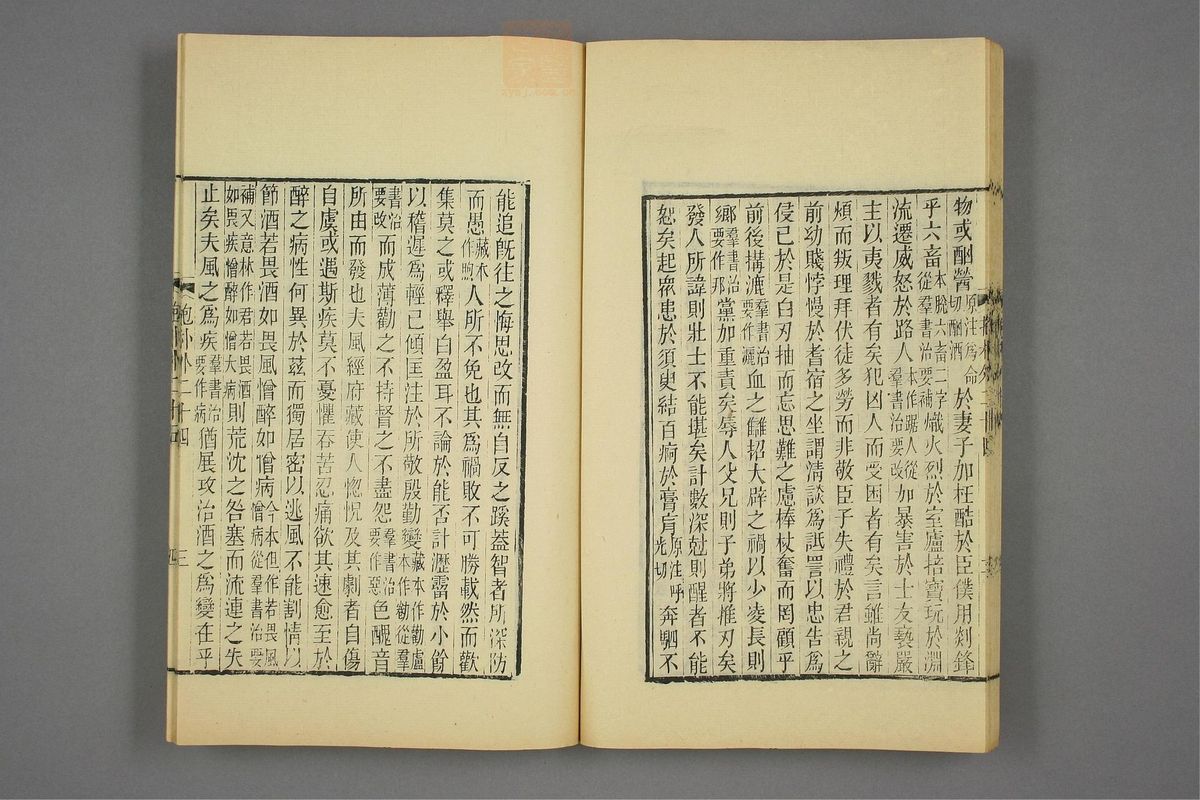 物或酗醟原注爲命切酗酒於妻子加枉酷於臣僕用剡鋒
乎六畜本脫六畜二字從羣書治要補熾火烈於室廬掊寶玩於淵
流遷威怒於路人本作踞人從羣書治要改加暴害於士友褻嚴
主以夷戮者有矣犯凶人而受困者有矣言雖尚辭
煩而叛理拜伏徒多勞而非敬臣子失禮於君親之
前幼賤悖慢於耆宿之坐謂清談爲詆詈以忠告爲
侵己於是白刃抽而忘思難之慮棒杖奮而罔顧乎
前後搆漉羣書治要作灑血之讎招大辟之禍以少凌長則
鄉羣書治要作邦黨加重責矣辱人父兄則子弟將推刃矣
發人所諱則壯士不能堪矣計數深尅則醒者不能
恕矣起衆患於須臾結百痾於膏肓原注呼光切奔駟不
能追既往之悔思改而無自反之蹊蓋智者所深防
而愚藏本作煦人所不免也其爲禍敗不可勝載然而歡
集莫之或釋舉白盈耳不論於能否計瀝霤於小餘
以稽遲爲輕己傾匡注於所敬殷勤變藏本作勸盧本作勑從羣
書治要改而成薄勸之不持督之不盡怨羣書治要作惡色醜音
所由而發也夫風經府藏使人惚怳及其劇者自傷
自虞或遇斯疾莫不憂懼吞苦忍痛欲其速愈至於
醉之病性何異於茲而獨居密以逃風不能割情以
節酒若畏酒如畏風憎醉如憎病今本但作若畏風憎病從羣書治要
補又意林作君若畏酒如畏疾憎醉如憎大病則荒沈之咎塞而流連之失
止矣夫風之爲疾羣書治要作病猶展攻治酒之爲變在乎
抱朴外二十四 三